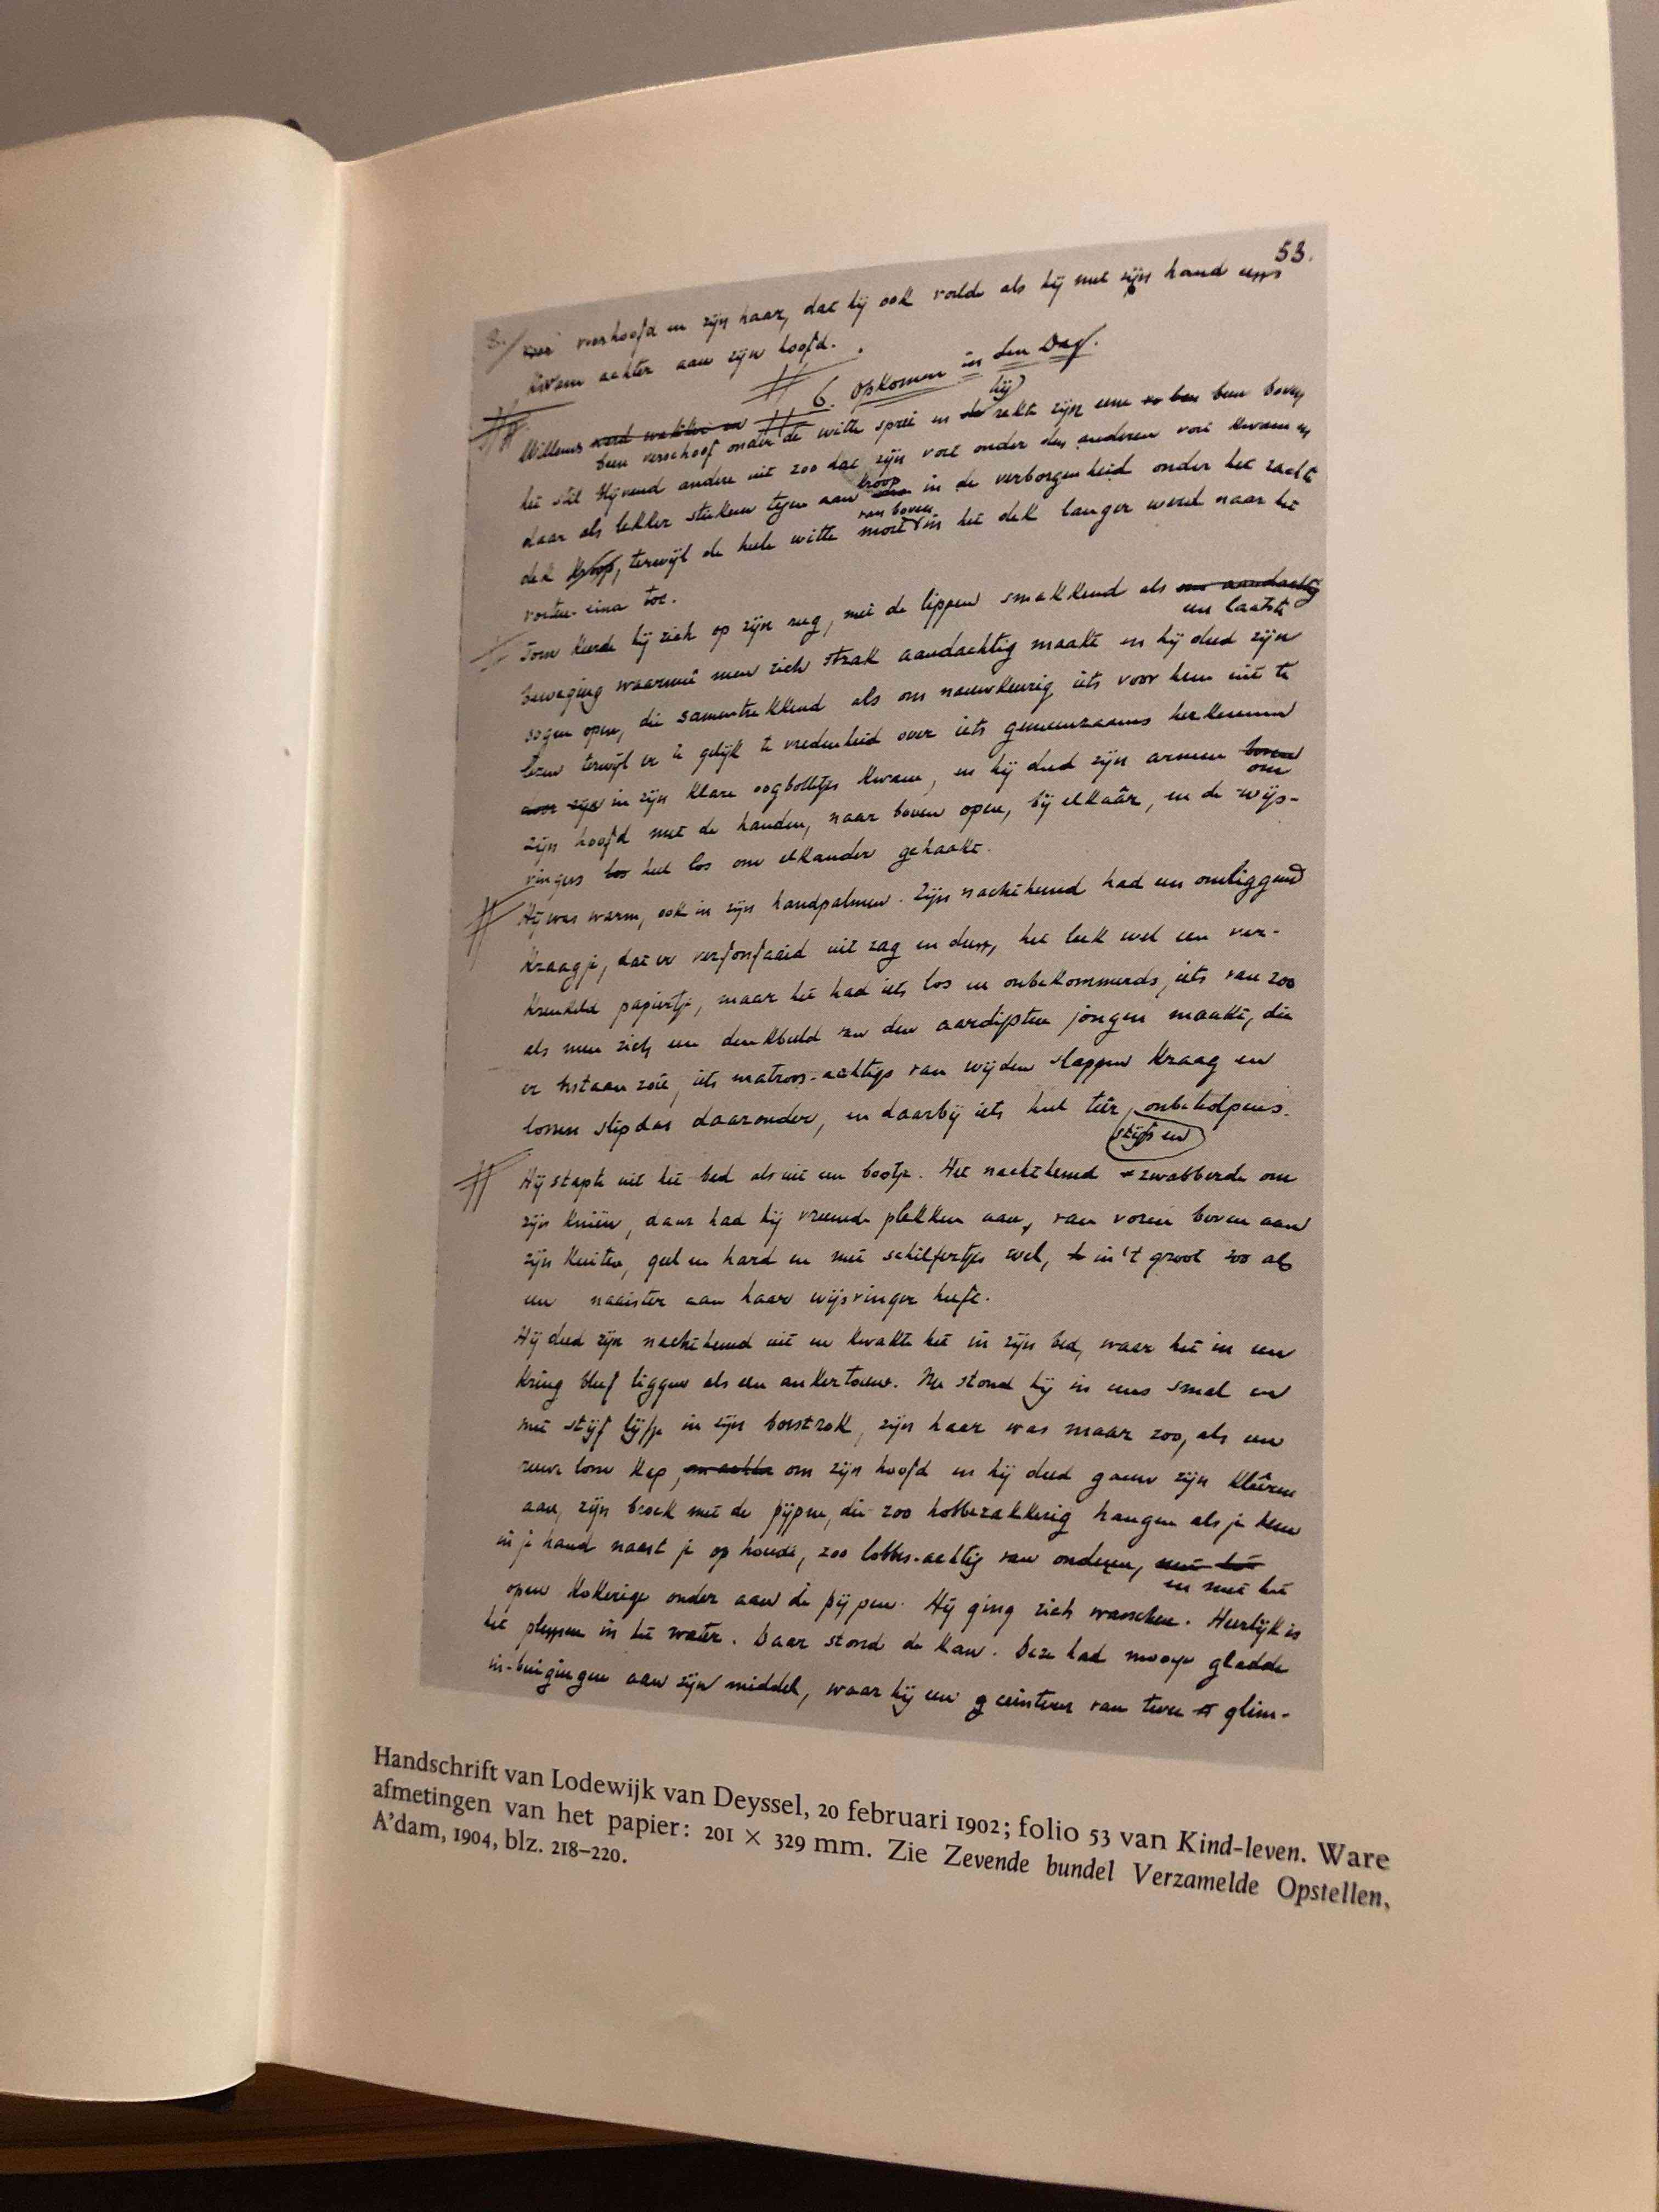 53.
voorhoofd en zijn haar, dat hij ook voelde als hij met zijn hand eens
kwam achter aan zijn hoofd.
6. Opkomen in den Dag.
hij
Willems werd wakker en
been verschoof onder de witte sprei en de rekte zijn eene been boven
het stil blijvend andere uit zoo dat zijn voet onder den anderen voet kwam en
kroop
daar als lekker stukew tegen aan in de verborgenheid onder het zachte
van boven
dek kroop, terwijl de heele witte in het dek langer werd naar het
voeten-eind toe.
Toen keerde hij zich op zijn rug, met de lippen smakkend als een aandachtig
een laatste
beweging waarmeê men zich strak aandachtig maakt en hij deed zijn
oogen open, die samentrekkend als om nauwkeurig iets voor hem uit te
lezen terwijl er te gelijk tevredenheid over iets gemeenzaams herkennend
door zijn in zijn klare oogbolletjes kwam, en hij deed zijn armen boven
om
zijn hoofd met de handen, naar boven open, bij elkaâr, en de wijs-
vingers los heel los om elkander gehaakt.
Hij was warm, ook in zijn handpalmen. Zijn nachthemd had een omliggend
kraagje, dat er verfonfaaid uit zag en dun, het leek wel een ver-
kreukeld papiertje, maar het had iets los en onbekommerds, iets van zoo
als men zich een denkbeeld van den aardigsten jongen maakt, die
er bestaan zoû, iets matroos-achtigs van wijden slappen kraag en
lossen slipdas daaronder, en daarbij iets heel teêr, onbeholpens.
stijf en
Hij stapte uit het bed als uit een bootje. Het nachthemd zwabberde om
zijn knieën, daar had hij vreemde plekken aan, van voren boven aan
zijn kuiten, geel en hard en met schilfertjes wel, in 't groot zoo als
een naaister aan haar wijsvinger heeft.
Hij deed zijn nachthemd uit en kwakte het in zijn bed, waar het in een
kring bleef liggen als een ankertouw. Nu stond hij in eens smal en
met stijf lijfje in zijn borstrok, zijn haar was maar zoo, als een
ruwe losse kap, om zijn hoofd en hij deed gauw zijn kleêren
aan, zijn broek met de pijpen, die zoo hobbezakkerig hangen als je hem
in je hand naast je op houdt, zoo lobbes-achtig van onderen, met het
en met het
open kokerige onder aan de pijpen. Hij ging zich wasschen. Heerlijk is
het plessen in het water. Daar stond de kan. Deze had mooye gladde
in-buigingen aan zijn middel, waar hij een ceintuur van twee glim-
Handschrift van Lodewijk van Deyssel, 20 februari 1902; folio 53 van Kind-leven. Ware
afmetingen van het papier: 201 × 329 mm. Zie Zevende bundel Verzamelde Opstellen,
A'dam, 1904, blz. 218–220.